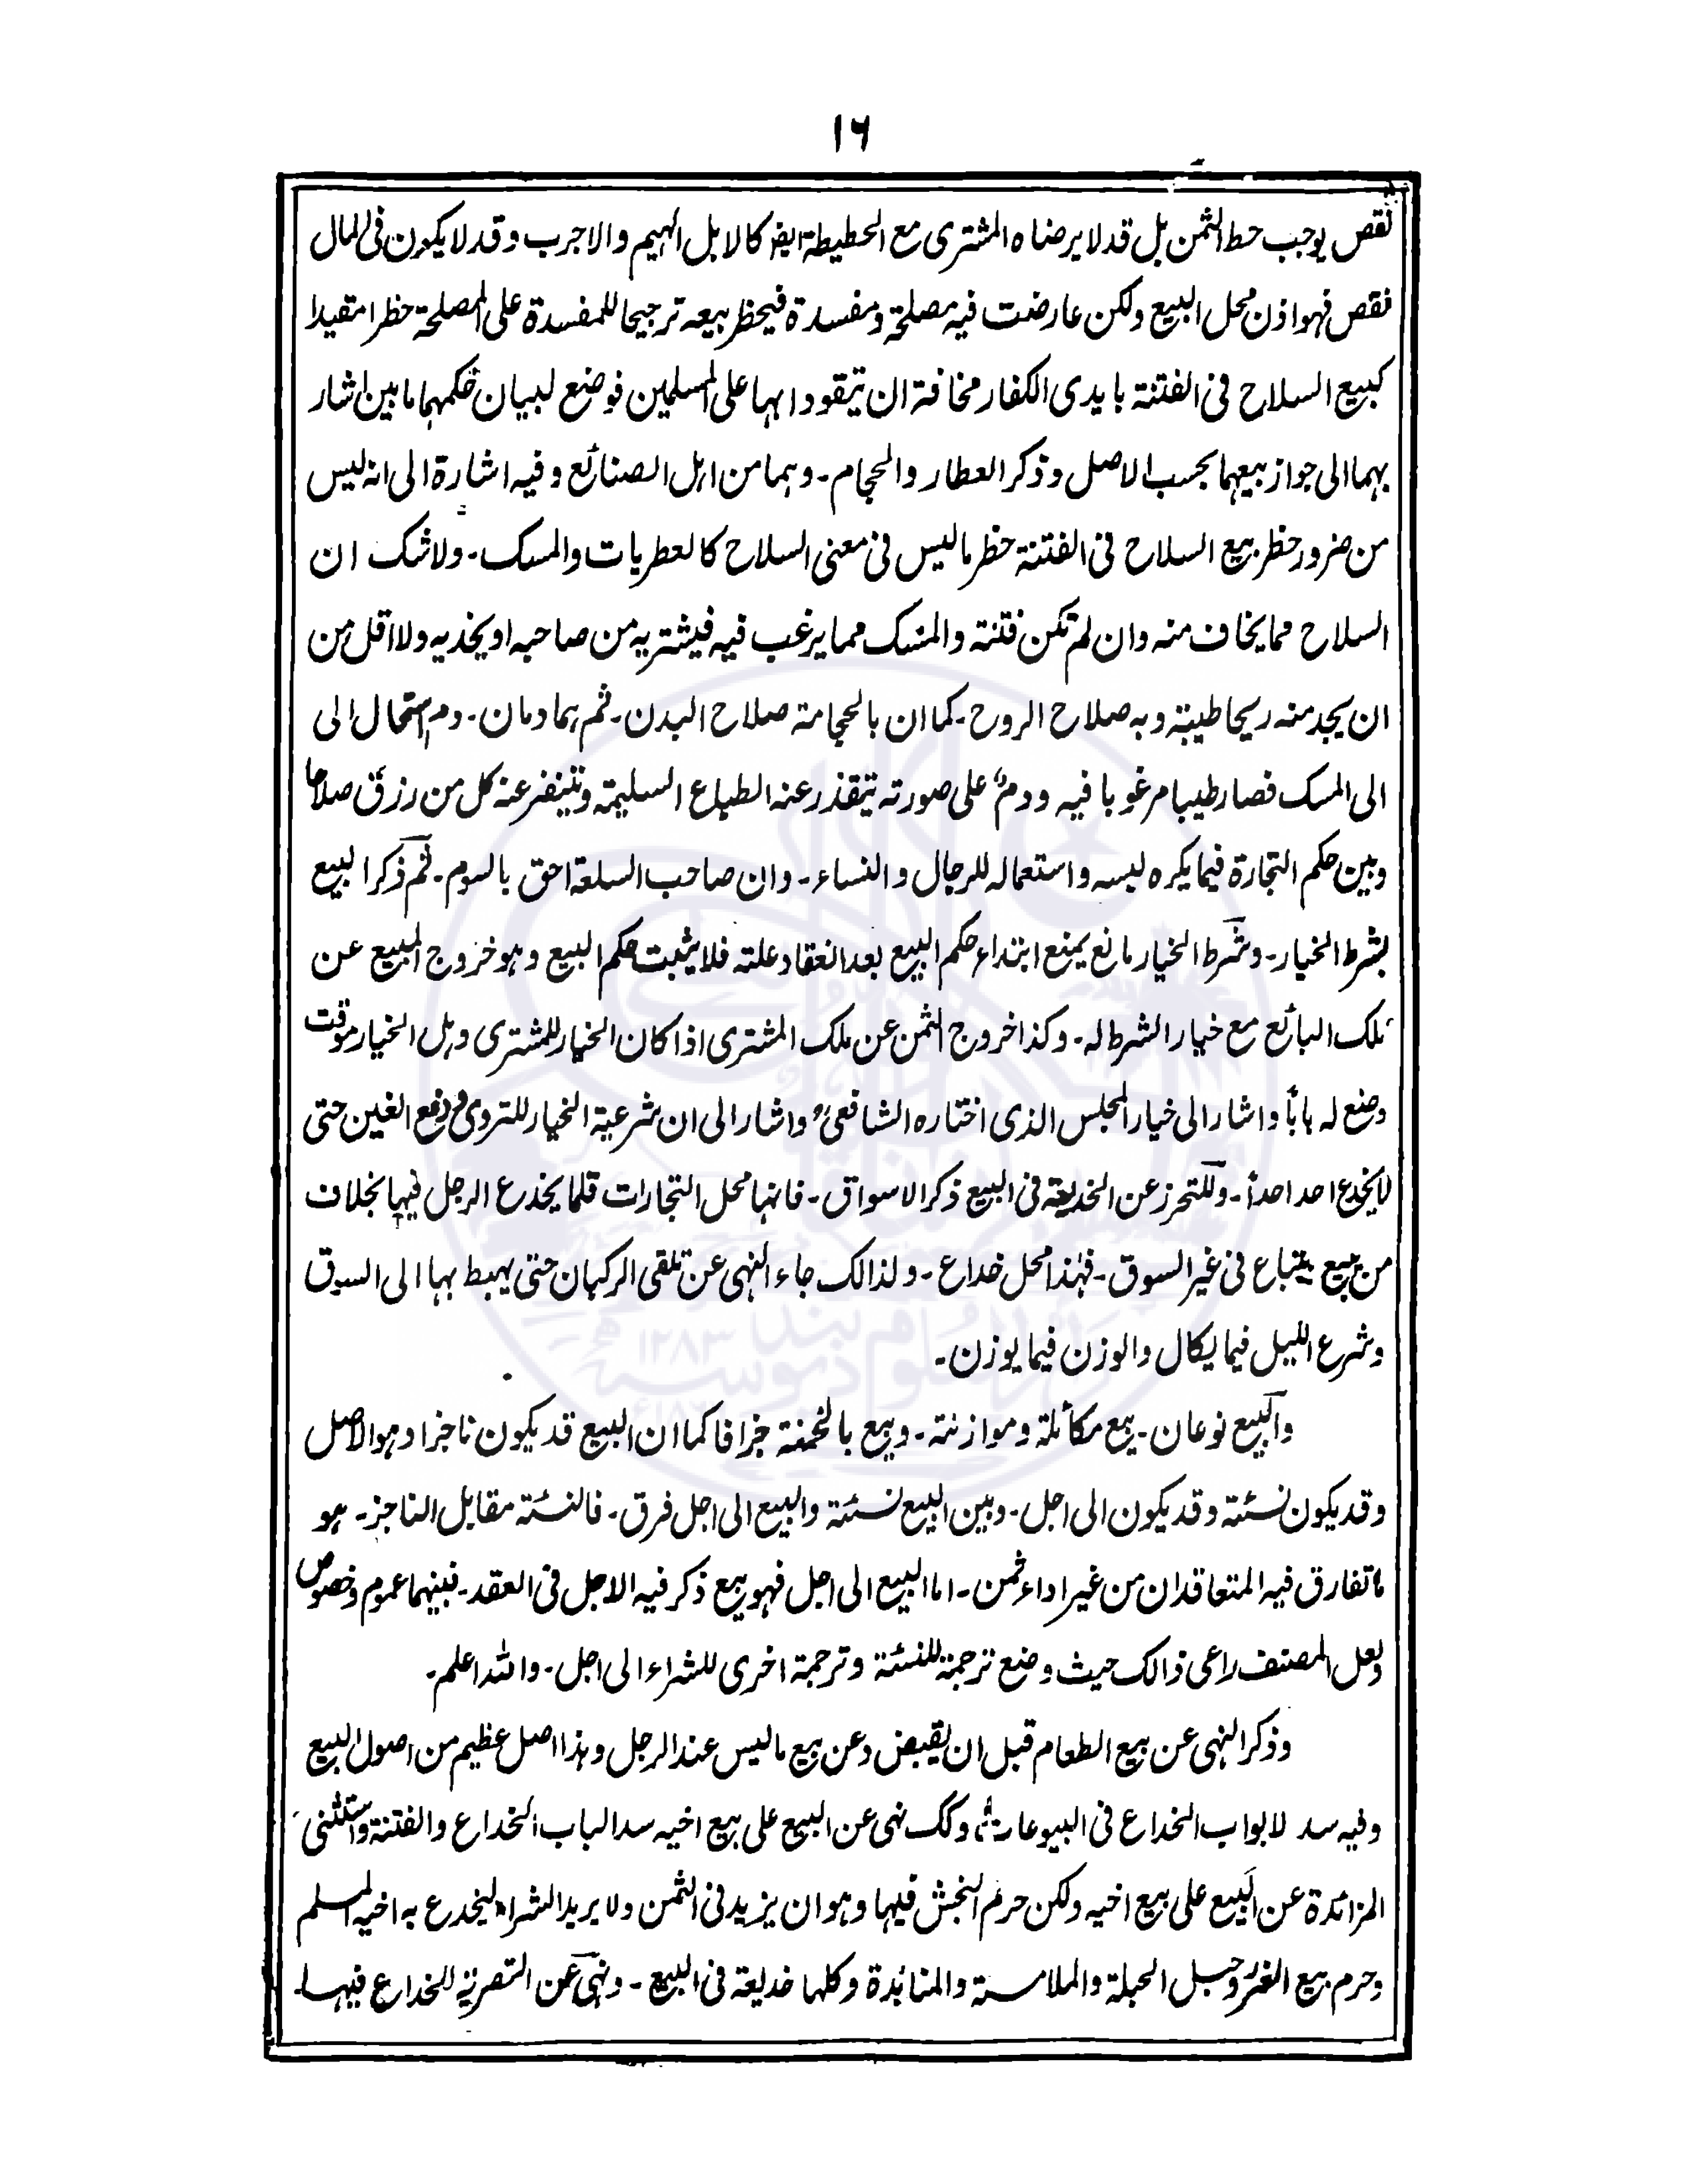 ١٦
نقص يوجب حط الثمن بل قد لا يرضاه المشترى مع الحطيطة ايضا كالابل الهيم والاجرب وقد لا يكون فى المال
نقص فهو اذن محل البيع ولكن عارضت فيه مصلحة ومفسدة فيحظر بيعه ترجيحا للمفسدة على المصلحة حظرا مقيدا
كبيع السلاح فى الفتنة بايدى الكفار مخافة ان يتقودا بها على المسلمين فوضع لبيان حكمهما ما بين اشار
بهما الى جواز بيعهما بحسب الاصل وذكر العطار والحجام۔ وهما من اهل الصنائع وفيه اشارة الى انه ليس
من ضرور حظر بيع السلاح فى الفتنة حظر ما ليس فى معنى السلاح كالعطريات والمسك۔ ولا شك ان
السلاح مما يخاف منه وان لم تكن فتنة والمسك مما يرغب فيه فيشتريه من صاحبه او يحذيه ولا اقل من
ان يجد منه ريحا طيبة وبه صلاح الروح۔ كما ان بالحجامة صلاح البدن۔ ثم هما دمان۔ دم استحال الى
الى المسك فصار طيبا مرغوبا فيه ودم على صورته تتقذر عنه الطباع السليمة وتتنفر عنه كل من رزق صلاحا
وبين حكم التجارة فيما يكره لبسه واستعماله للرجال والنساء۔ وان صاحب السلعة احق بالسوم۔ ثم ذكر البيع
بشرط الخيار۔ وشرط الخيار مانع يمنع ابتداء حكم البيع بعد انعقاد علته فلا يثبت حكم البيع وهو خروج المبيع عن
ملك البائع مع خيار الشرط له۔ وكذا خروج الثمن عن ملك المشترى اذا كان الخيار للمشترى وهل الخيار موقت
وضع له بابا واشار الى خيار المجلس الذى اختاره الشافعىؒ واشار الى ان شرعية الخيار للتروى ودفع الغبن حتى
لا يخدع احد احدا۔ وللتحرز عن الخديعة فى البيع ذكر الاسواق۔ فانها محل التجارات قلما يخدع الرجل فيها بخلاف
من بيع يبتاع فى غير السوق۔ فهذا محل خداع۔ ولذالك جاء النهى عن تلقى الركبان حتى يهبط بها الى السوق
وشرع الليل فيما يكال والوزن فيما يوزن۔
والبيع نوعان۔ بيع مكائلة وموازنة۔ وبيع بالخمنة جزافا كما ان البيع قد يكون ناجزا وهو الاصل
وقد يكون نسئة وقد يكون الى اجل۔ وبين البيع نسئة والبيع الى اجل فرق۔ فالنسئة مقابل الناجز۔ هو
ما تفارق فيه المتعاقدان من غير اداء ثمن۔ اما البيع الى اجل فهو بيع ذكر فيه الاجل فى العقد۔ فبينهما عموم وخصوص
ولعل المصنف راعى ذالك حيث وضع ترجمة للنسئة وترجمة اخرى للشراء الى اجل۔ والله اعلم۔
وذكر النهى عن بيع الطعام قبل ان يقبض وعن بيع ما ليس عند الرجل وهذا اصل عظيم من اصول البيع
وفيه سد لابواب الخداع فى البيوعات وكك نهى عن البيع على بيع اخيه سدا لباب الخداع والفتنة واستثنى
المزائدة عن البيع على بيع اخيه ولكن حرم النجش فيها وهو ان يزيد فى الثمن ولا يريد الشراء ليخدع به اخيه المسلم
وحرم بيع الغرر وحبل الحبلة والملامسة والمنابذة وكلها خديعة فى البيع۔ ونهى عن التصرية للخداع فيها۔